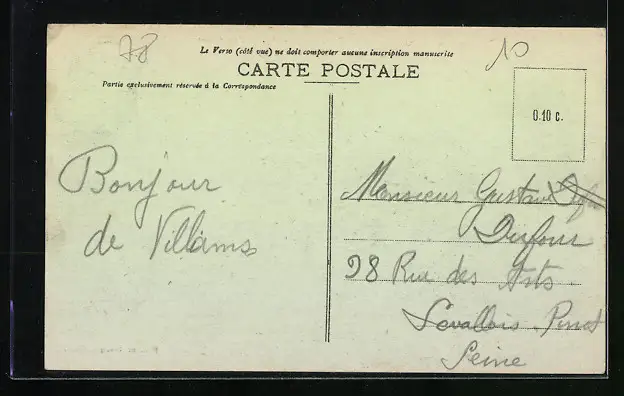 78
10
Le Verso (côté vue) ne doit comporter aucune inscription manuscrite
CARTE POSTALE
Partie exclusivement réservée à la Correspondance
0.10 c.
Bonjour
de Villiams
Monsieur Gustave
Dufour
98 Rue des Arts
Levallois Perret
Seine